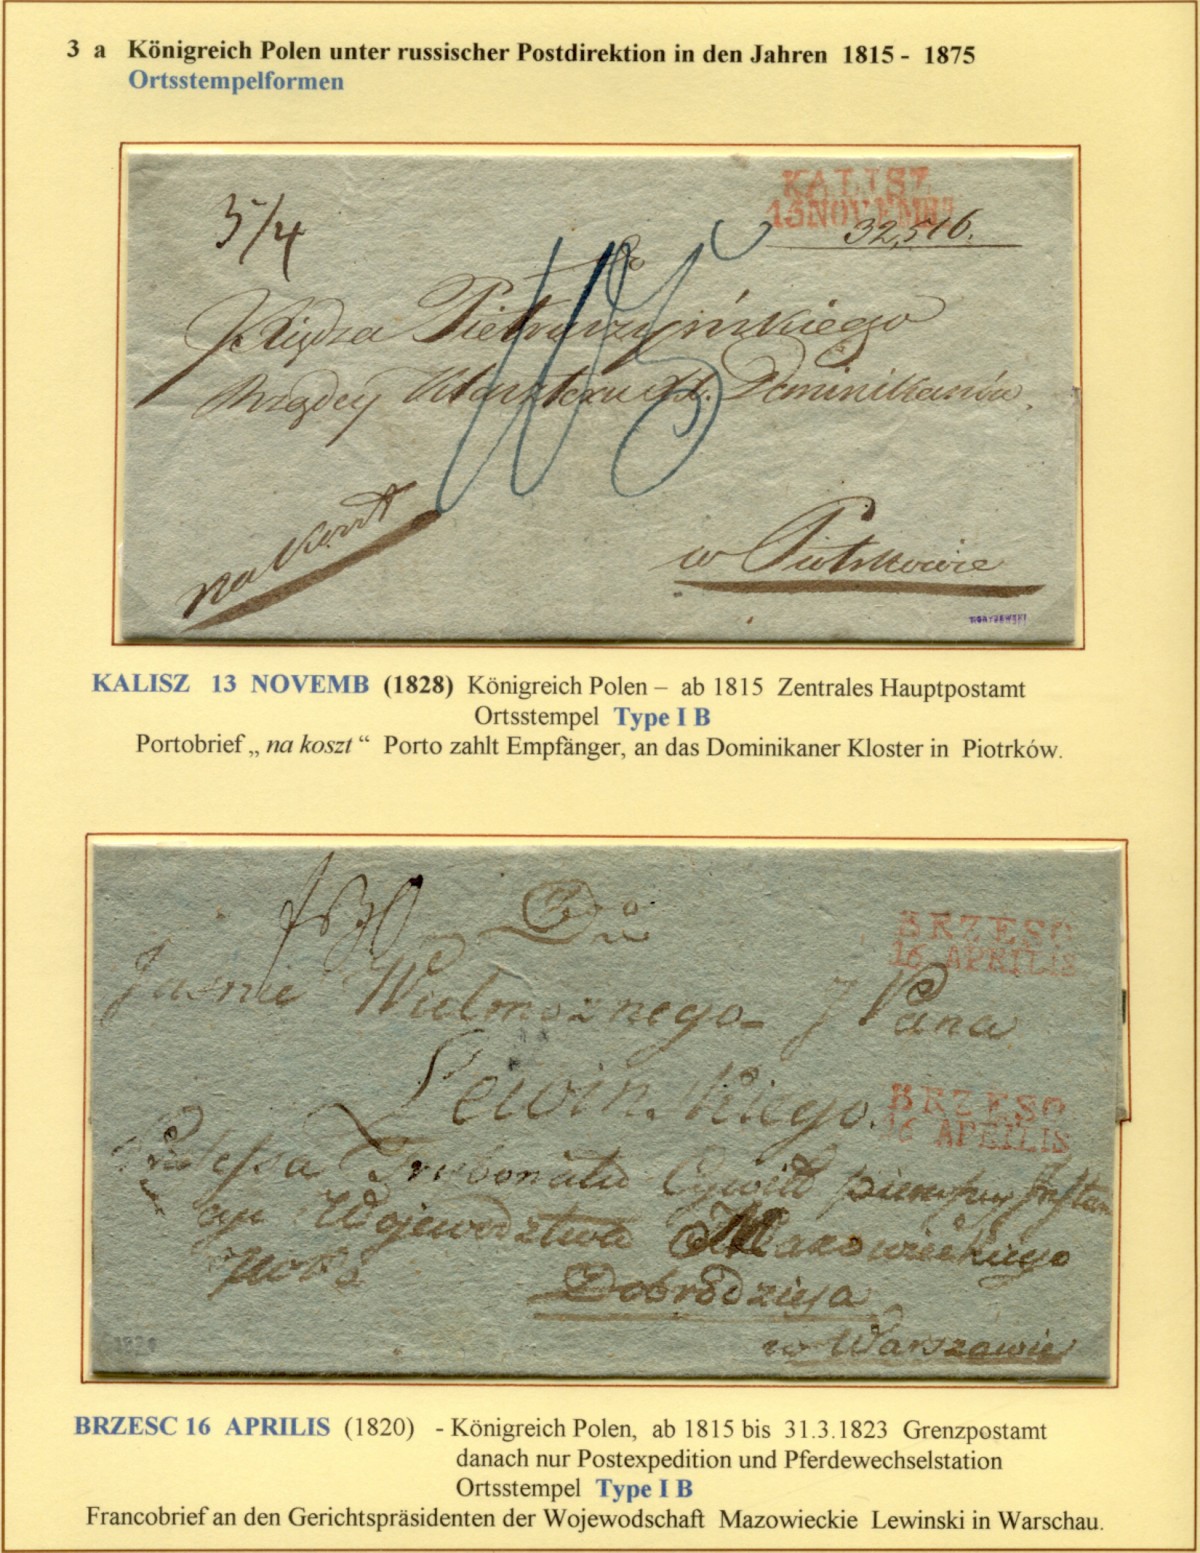 3 a Königreich Polen unter russischer Postdirektion in den Jahren 1815 - 1875
Ortsstempelformen
KALISZ
13 NOVEMB
3/4
32,516.
Do
Księdza Pietruszyńskiego
Rządcy Klasztoru XX. Dominikanów
na koszt
w Piotrkowie
KALISZ 13 NOVEMB (1828) Königreich Polen – ab 1815 Zentrales Hauptpostamt
Ortsstempel Type I B
Portobrief „ na koszt “ Porto zahlt Empfänger, an das Dominikaner Kloster in Piotrków.
BRZESC
16 APRILIS
Do
Jaśnie Wielmoznego J Pana
Lewinskiego.
BRZESC
16 APRILIS
Prezessa Trybonału Cywill pierwszey Instan
cyi Wojewodztwa Mazowieckiego
Dobrodzieja
w Warszawie
BRZESC 16 APRILIS (1820) - Königreich Polen, ab 1815 bis 31.3.1823 Grenzpostamt
danach nur Postexpedition und Pferdewechselstation
Ortsstempel Type I B
Francobrief an den Gerichtspräsidenten der Wojewodschaft Mazowieckie Lewinski in Warschau.